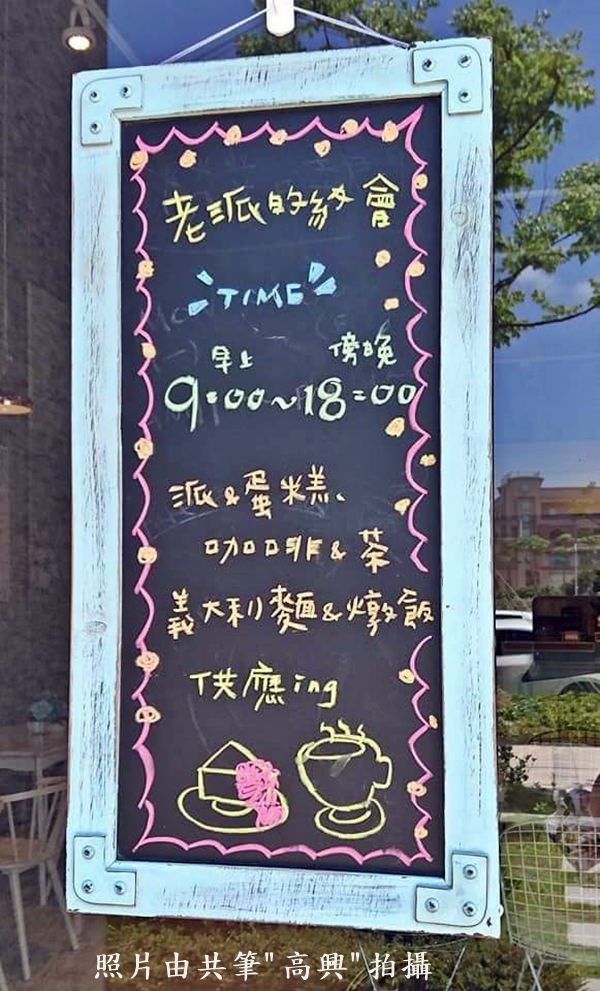 老派的約會
TIME
早上 傍晚
9:00~18:00
派&蛋糕、
咖啡&茶
義大利麵&燉飯
供應ing
照片由共筆"高興"拍攝